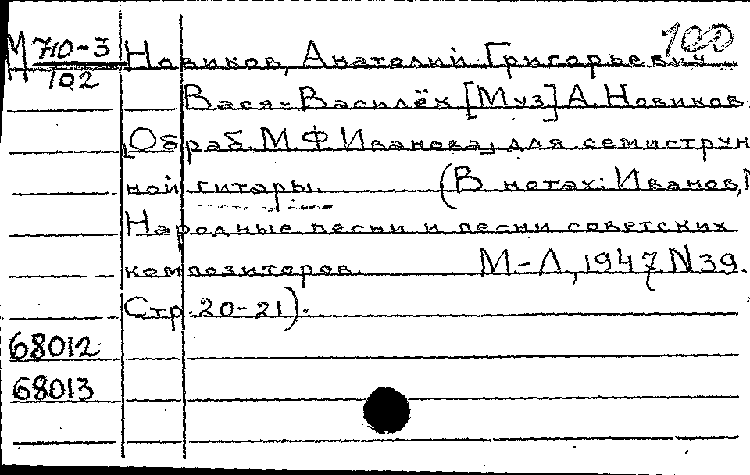 М 710-3 Новиков, Анатолий Григорьевич 100
102
Вася-Василёк [Муз] А. Новиков.
[Обраб. М. Ф. Иванова] для семиструн
ной гитары. (В нотах: Иванов,
Народные песни и песни советских
композиторов. М-Л, 1947 N 39.
Стр. 20-21).
68012
68013